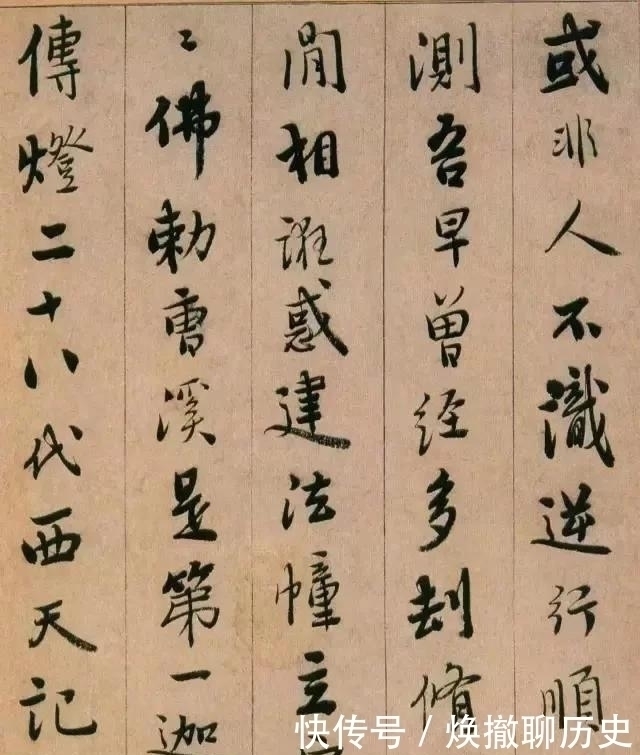 或非人不識逆行順
測吾早曾經多劫脩
閒相誑惑建法幢立
〻佛勅曹溪是第一迦
傳燈二十八代西天記
快传号 / 焕撤聊历史